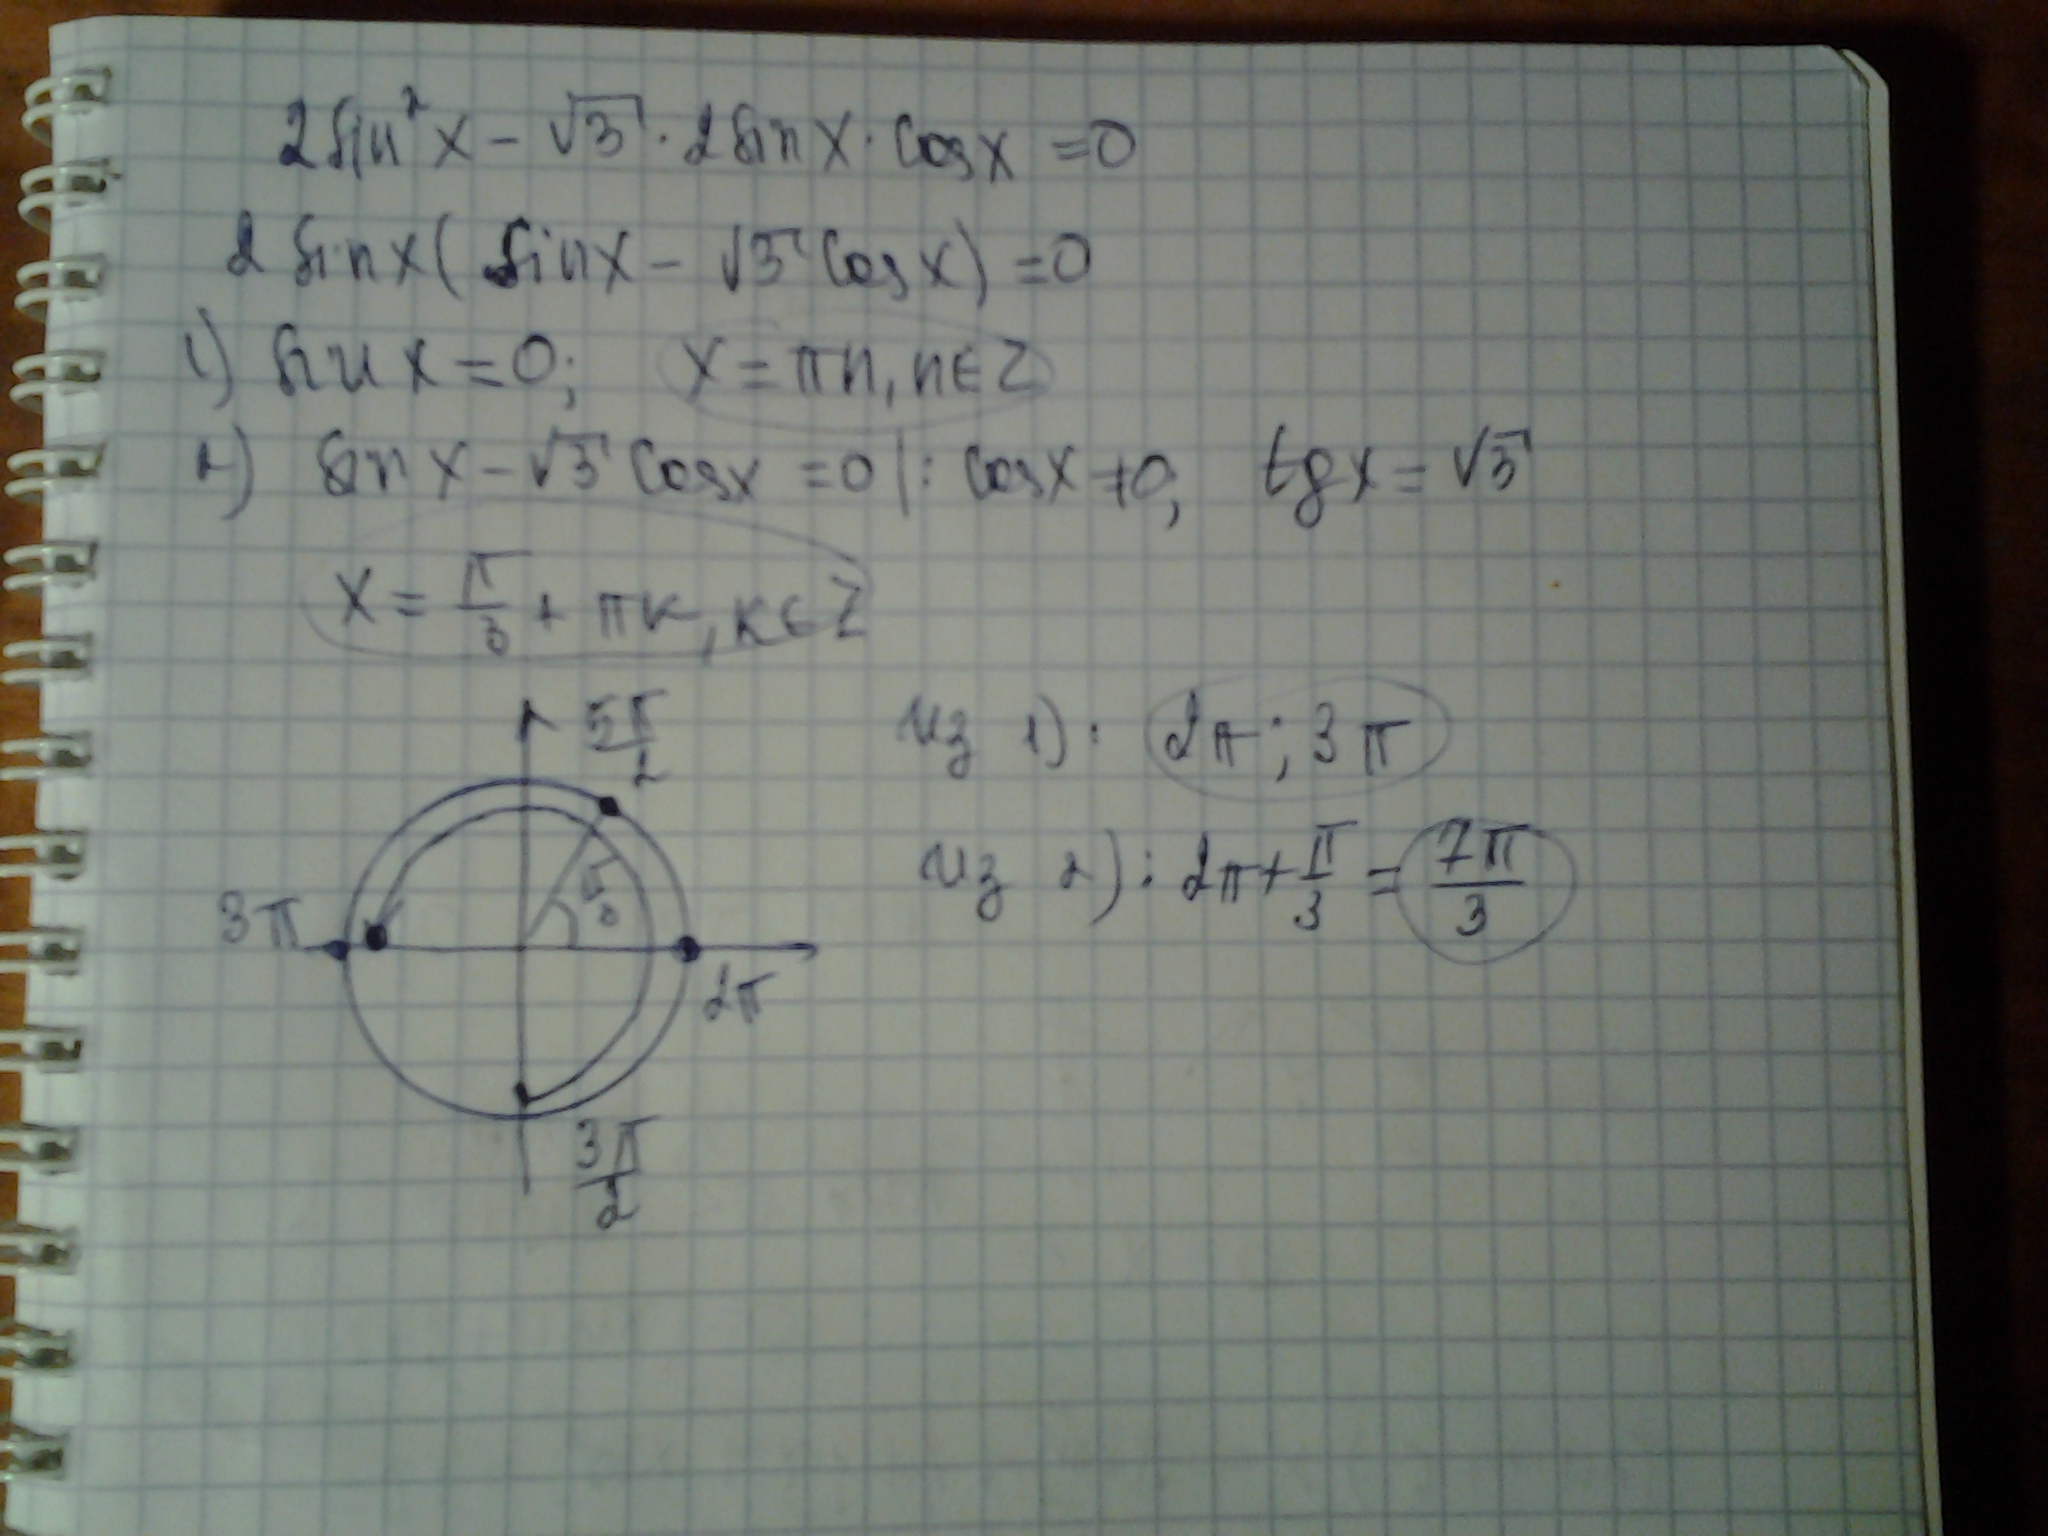 2sin²x - √3 · 2sinx · cosx = 0
2sinx(sinx - √3 cosx) = 0
1) sinx = 0; x = πn, n∈Z
2) sinx - √3 cosx = 0 |: cosx ≠ 0; tgx = √3
x = π/3 + πk, k∈Z
5π/2
Из 1): 2π; 3π
Из 2): 2π + π/3 = 7π/3
π/3
3π
2π
3π/2